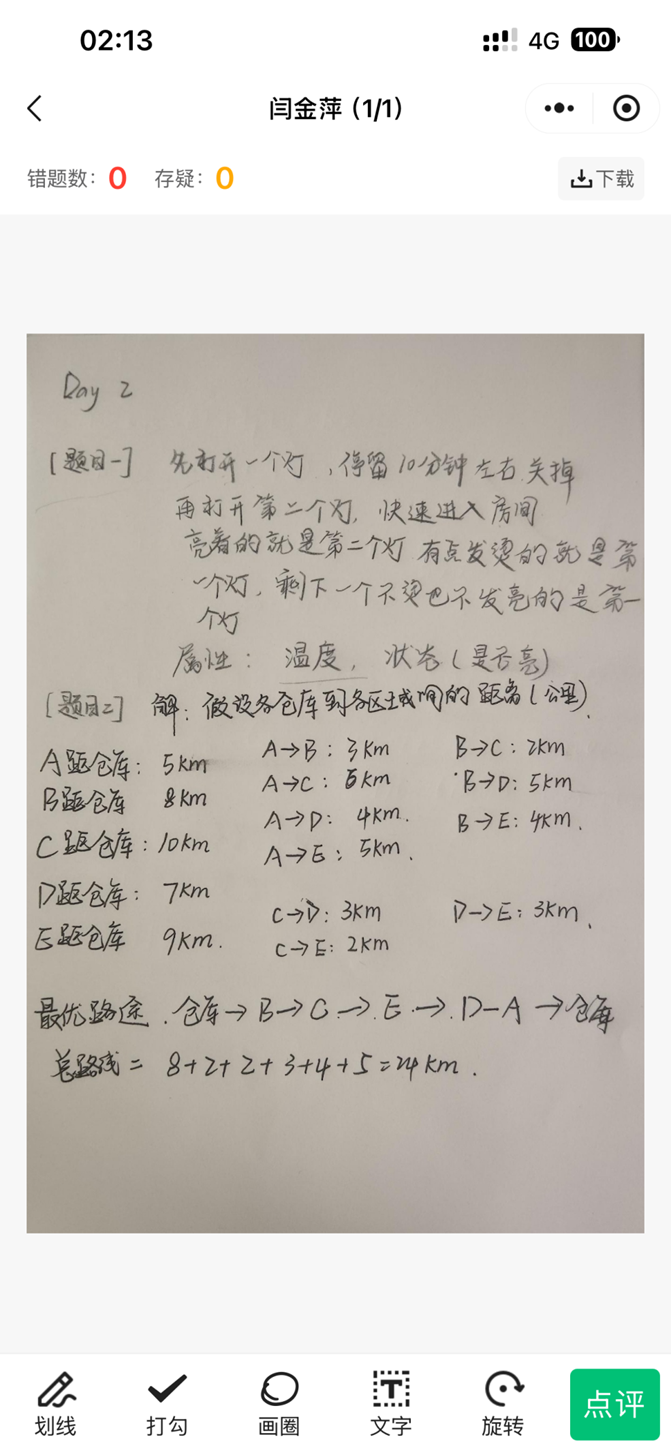 02:13
4G 100
闫金萍（1/1）
错题数：0 存疑：0 下载
Day 2
[题目一] 先打开一个灯，停留10分钟左右.关掉
再打开第二个灯，快速进入房间
亮着的就是第二个灯 有点发烫的就是第
一个灯，剩下一个不烫也不发亮的是第一
个灯
属性：温度，状态（是否亮）
[题目二] 解：做设各仓库到各区域间的距离（公里）.
A距仓库：5km A→B：3km B→C：2km
B距仓库 8km A→C：6km B→D：5km
C距仓库：10km A→D：4km. B→E：4km.
A→E：5km.
D距仓库：7km C→D：3km D→E：3km.
E距仓库 9km. C→E：2km
最优路途.仓库→B→C→E→D-A→仓库
总路线= 8+2+2+3+4+5=24km.
划线 打勾 画圈 文字 旋转 点评